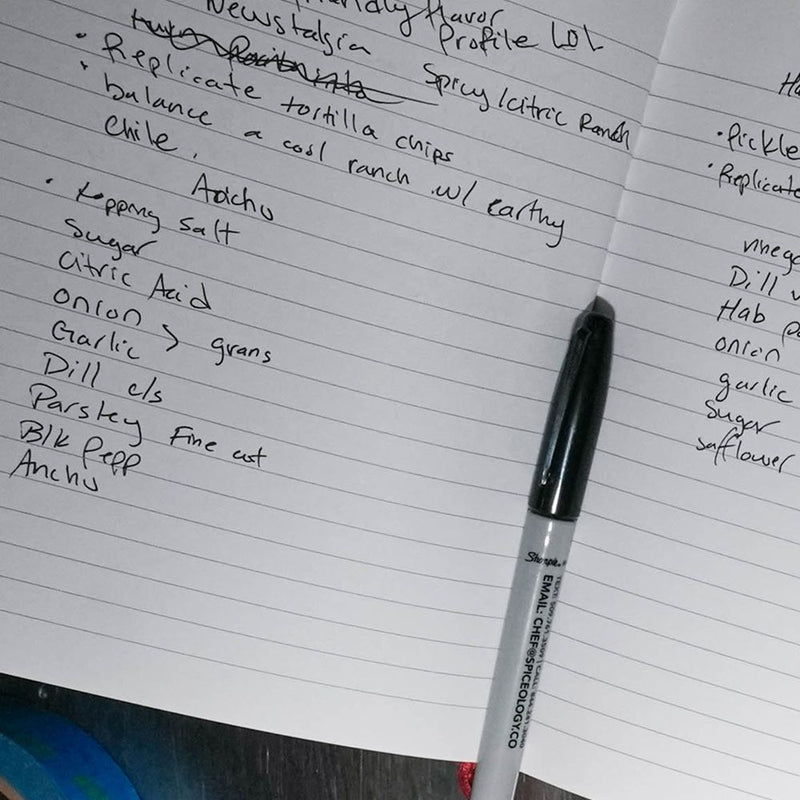 Friendly flavor
Newstalgia Profile LOL
Spicy/citric Ranch
• Replicate tortilla chips
• balance a cool ranch w/ earthy
Chile.
Ancho
• topping salt
Sugar
Citric Acid
onion > grans
Garlic
Dill c/s
Parsley Fine cut
Blk Pepp
Ancho
• Pickle
• Replicate
Dill
Hab
onion
garlic
Sugar
safflower
Sharpie
EMAIL: CHEF@SPICEOLOGY.CO